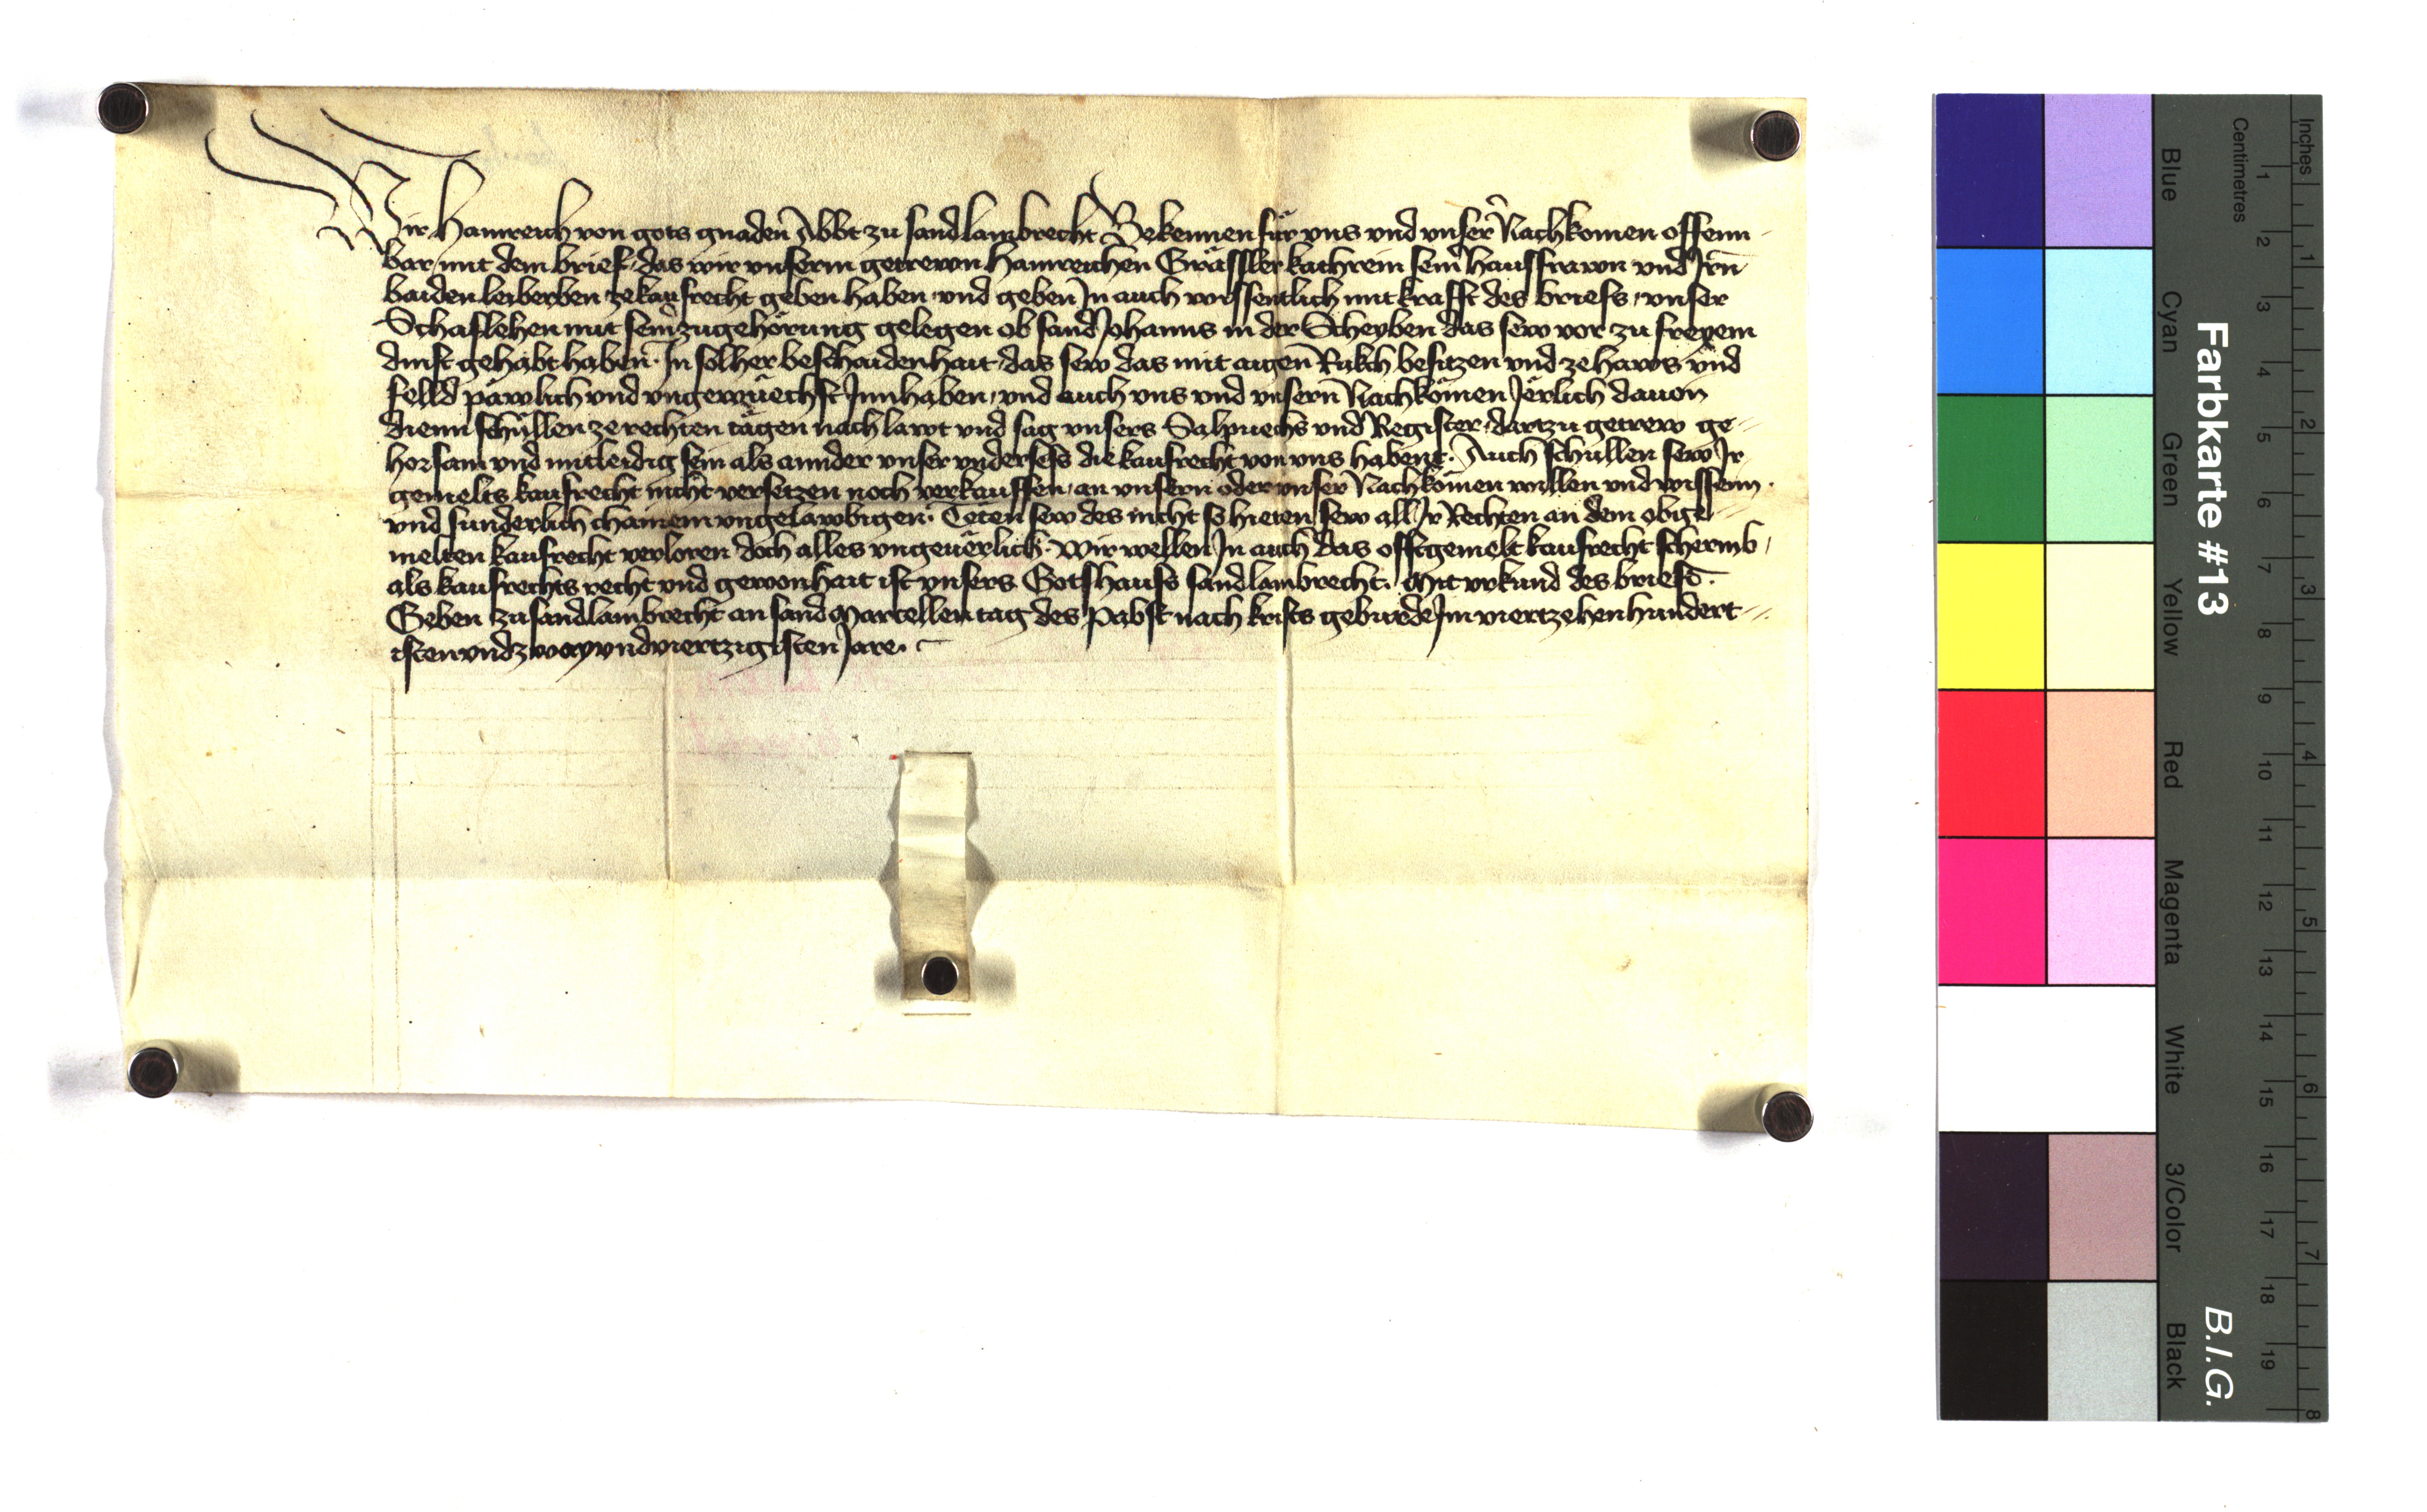 Wir Hainreich von gots gnaden Abbt zu sand lambrecht Bekennen für vns vnd vnser Nachkomen offenn
bar mit dem brief, das wir vnserm getrewn Hainreichen Grässler kathrein seinr hausfrawn vnd Irn
baiden leiberben ze kaufrecht geben haben vnd geben In auch wissentlich mit krafft des briefs, vnser
Schaflehen mit seinr zugehörung gelegen ob sand Johanns in der Scheyben das sew vor zu freyem
dinst gehabt haben. In solher beschaidenhait, das sew das mit aigen Rukch besitzen vnd ze haws vnd
felld päwlich vnd vngewüechst Innhaben, vnd auch vns vnd vnsern Nachkömen Jerlich dauon
dienn schüllen ze rechten tägen nach lawt vnd sag vnsers Salpuechs vnd Register, dartzu getrew ge=
horsam vnd mitleidig sein als annder vnser vnderses die kaufrecht von vns habent. Auch schüllen sew Ir
gemelts kaufrecht nicht versetzen noch verkauffen, an vnsern oder vnser Nachkömen willen vnd wissenn.
vnd sunderlich chainem vngelawbigen. Teten sew des nicht so hieten sew all Ir Rechten an dem obige=
melten kaufrecht verloren doch alles vngeuërlich. Wir wellen In auch das offtgemelt kaufrecht schermb,
als kaufrechts recht vnd gewonhait ist vnsers Gotshauss sand lambrecht. Mit vrkund des briefs.
Geben zu sand lambrecht an sand Marcellen tag des Pabst nach krists geburde Im viertzehenhundert=
isten vnd zway vnd viertzigisten Jare.
Farbkarte #13
B.I.G.
Centimetres
Inches
Blue
Cyan
Green
Yellow
Red
Magenta
White
3/Color
Black
1 2 3 4 5 6 7 8 9 10 11 12 13 14 15 16 17 18 19
1 2 3 4 5 6 7 8